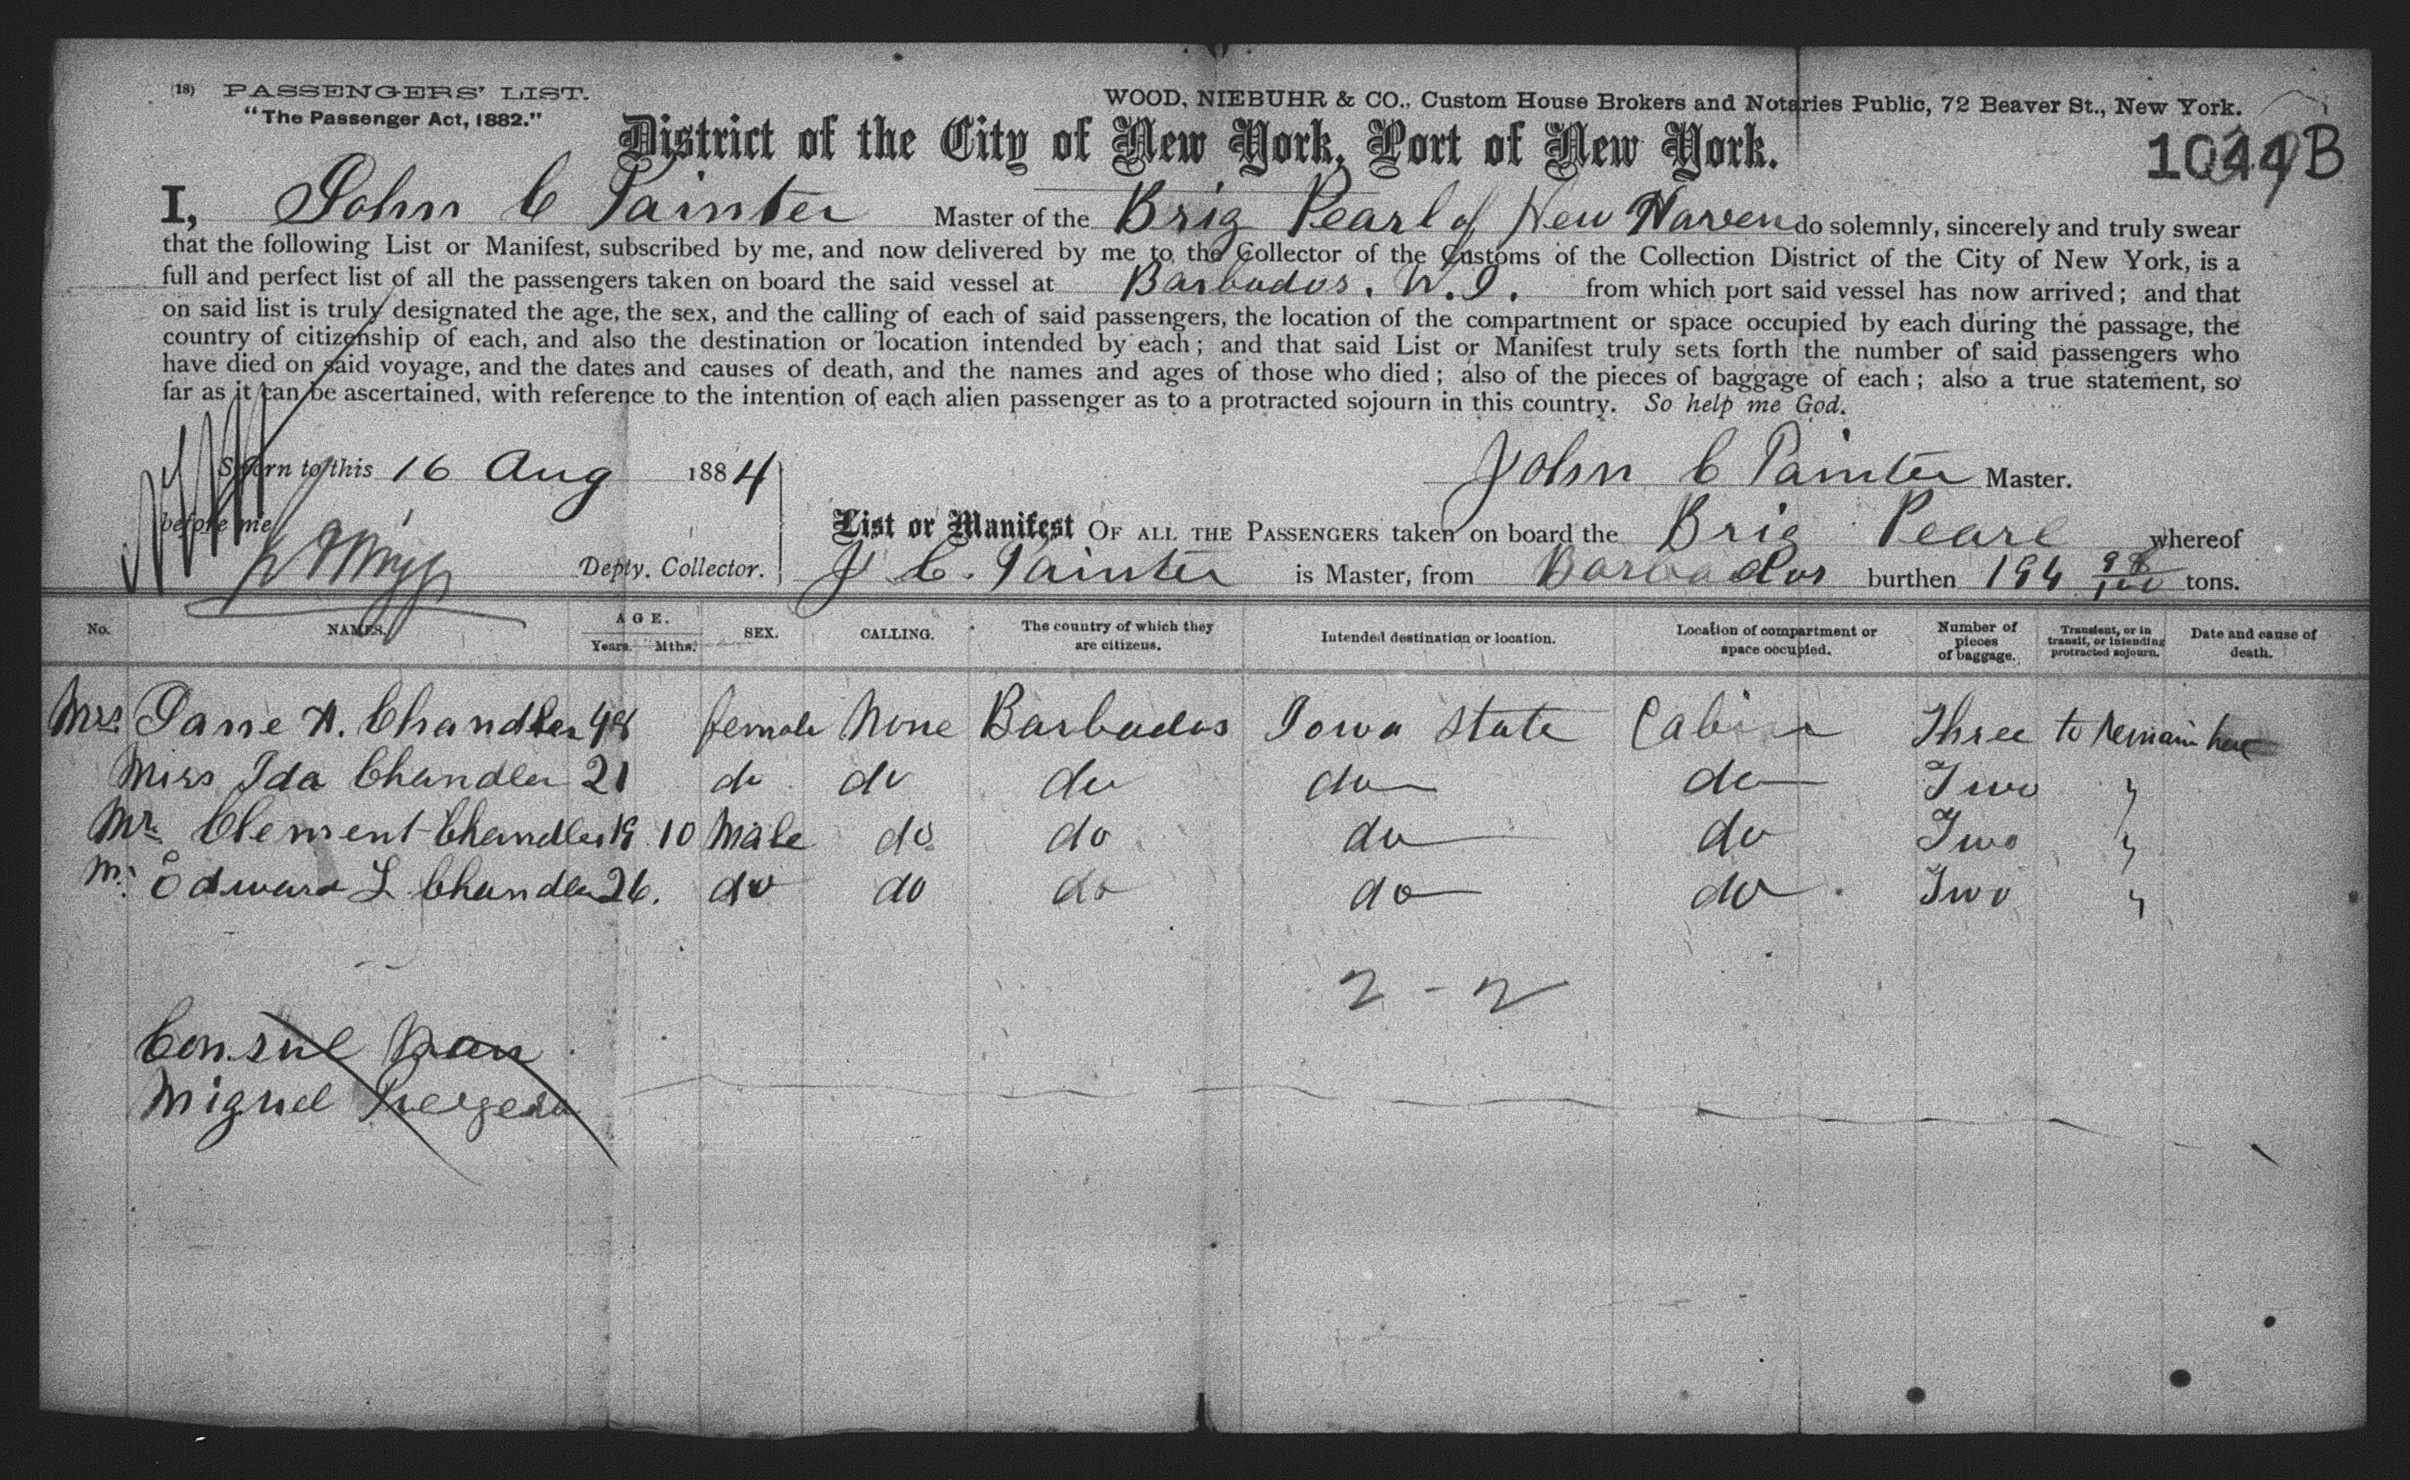 (18) PASSENGERS' LIST.
"The Passenger Act, 1882."
WOOD, NIEBUHR & CO., Custom House Brokers and Notaries Public, 72 Beaver St., New York.
District of the City of New York, Port of New York.
B
I, John C Painter Master of the Brig Pearl of New Haven do solemnly, sincerely and truly swear
that the following List or Manifest, subscribed by me, and now delivered by me to the Collector of the Customs of the Collection District of the City of New York, is a
full and perfect list of all the passengers taken on board the said vessel at Barbados. W.I. from which port said vessel has now arrived; and that
on said list is truly designated the age, the sex, and the calling of each of said passengers, the location of the compartment or space occupied by each during the passage, the
country of citizenship of each, and also the destination or location intended by each; and that said List or Manifest truly sets forth the number of said passengers who
have died on said voyage, and the dates and causes of death, and the names and ages of those who died; also of the pieces of baggage of each; also a true statement, so
far as it can be ascertained, with reference to the intention of each alien passenger as to a protracted sojourn in this country. So help me God.
Sworn to this 16 Aug 1884
John C Painter Master.
before me
Depty. Collector.
List or Manifest OF ALL THE PASSENGERS taken on board the Brig Pearl whereof
J C. Painter is Master, from Barbados burthen 194 98/100 tons.
No. NAMES. AGE. Years. Mths. SEX. CALLING. The country of which they are citizens. Intended destination or location. Location of compartment or space occupied. Number of pieces of baggage. Transient, or in transit, or intending protracted sojourn. Date and cause of death.
Mrs. Jane A. Chandler 48 female None Barbados Iowa State Cabin Three to Remain here
Miss Ida Chandler 21 do do do do do Two "
Mr. Clement Chandler 19 10 Male do do do do Two "
Mr. Edward L Chandler 26. do do do do do Two "
2 - 2
Consul
Miguel